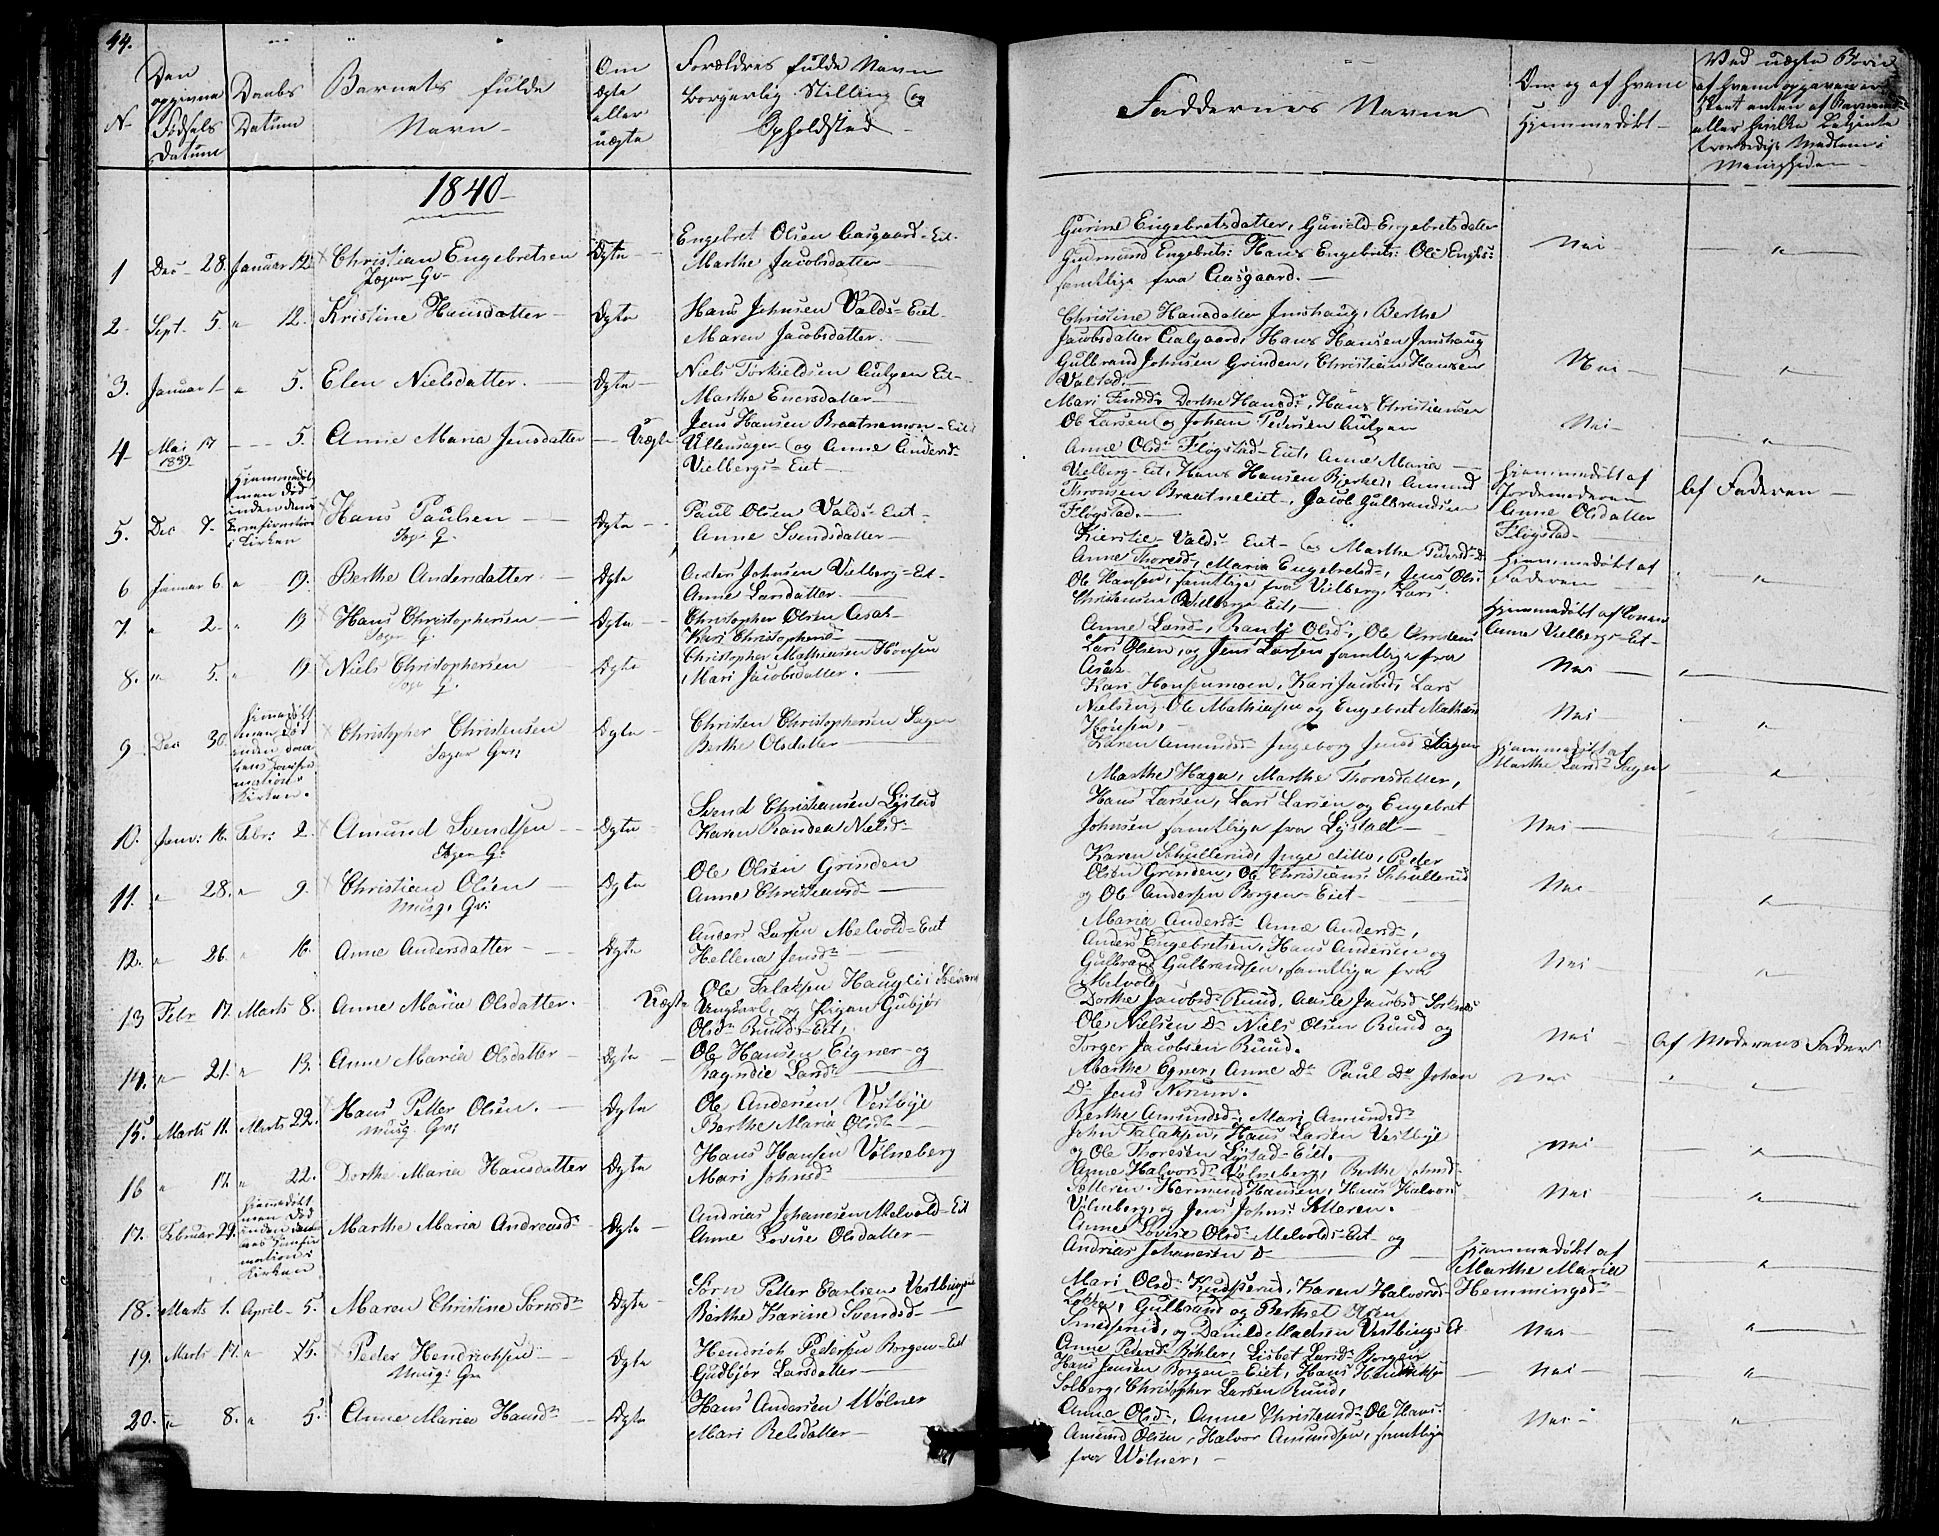 44.
N
Den opgivne Fødsels Datum
Daabs Datum
Barnets fulde Navn
Om ægte eller uægte
Forældres fulde Navn Borgerlig Stilling og Opholdsted
Faddernes Navne
Om og af hvem Hjemmedøbt
Ved uægte Børn
1840
1 Dec 28. Januar 12 Christian Engebretsen Ægte Engebret Olsen Aasgaard-Eit.
Jæger Gv. Marthe Jacobsdatter
Gurine Engebretsdatter, Gunild Engebretsdatter
Gudmund Engebrets: Hans Engebrets: Ole Engbs:
samtlige fra Aasgaard.
Nei
2. Sept. 5. " 12. Kristine Hansdatter Ægte Hans Johnsen Valds-Eiet.
Maren Jacobsdatter.
Christine Hansdatter Jenshaug, Berthe
Jacobsdatter Aalgaard, Hans Hansen Jenshaug
Gulbrand Johnsen Grinden, Christian Hansen
Valstad.
Nei
3. Januar 1 " 5. Elen Nielsdatter. Ægte Niels Torkieldsen Aulgen Eit
Marthe Enersdatter
Mari Findsd: Dorthe Hansd:, Hans Christiansen
Ole Larsen og Johan Pedersen Aulgen
Nei
4 Mai 17 1839 5. Anne Maria Jensdatter Uægte Jens Hansen Braatnemon-Eit:
Ullensager og Anne Andersd:
Vielbergs-Eiet
Anne Olsd: Flogstad-Eit, Anne Maria
Vielberg-Eit, Hans Hansen Bjerked, Amund
Thronsen Braatneliet, Jacob Gulbrandsen
Flogstad.
Hjemmedøbt af
Jordemoderen
Anne Olsdatter
Flogstad
Af Faderen
5. Dec 7. Hjemmedøbt
men død
inden dens
Confirmation
i Kirken
Hans Paulsen Ægte Paul Olsen Valds-Eit
Anne Svendsdatter
Kierstie Valds-Eit og Marthe Pedersd:
6 Januar 6. " 19. Berthe Andersdatter. Ægte Anders Johnsen Vielberg-Eit
Anne Larsdatter.
Anne Thoresd:, Maria Engebretsd:, Jens Ols:
Ole Hansen, samtlige fra Vielberg, Lars
Christensen Vielbergs Eit,
Hjemmedøbt af
Faderen
7. " 2. " 19 Hans Christophersen Ægte Christopher Olsen Aasak
Kari Christophersd:
Anne Larsd:, Randi Olsd:, Ole Christens
Lars Olsen, og Jens Larsen samtlige fra
Aasak
Hjemmedøbt af Konen
Anne Vielbergs-Eit
8. " 5. " 19 Niels Christophersen Ægte Christopher Mathiesen Hønsen
Mari Jacobsdatter.
Kari Hønsenmoen, Kari Jacobsd, Lars
Nielsen, Ole Mathiesen og Engebret Mathies
Hønsen,
Nei
9. Dec 30. Hjemmedøbt
men død
inden daa
Kirken.
Christopher Christensen Ægte Christen Christophersen Sagen
Jæger Gv: Berthe Olsdatter
Karen Amundsd: Ingeborg Jensd Sagen
Nei
Hjemmedøbt af
Marthe Larsd: Sagen
10. Janu: 16. Febr: 2. Amund Svendsen Ægte Svend Christiansen Lystad
Jæger G: Karen Randea Nielsd:
Marthe Haga, Marthe Thoresdatter,
Hans Larsen, Lars Larsen og Engebret
Johnsen samtlige fra Lystad
Nei
11. " 28. " 9. Christian Olsen Ægte Ole Olsen Grinden
Musq: Gv: Anne Christiansd:
Karen Skullerud, Inge ditto, Peder
Olsen Grinden, Ole Christians Skullerud
og Ole Andersen Borgen-Eiet
Nei
12. " 26. " 16. Anne Andersdatter Ægte Anders Larsen Melvold-Eit
Hellena Jensd:
Maria Andersd: Anne Andersd:,
Anders Engebretsen, Hans Andersen og
Gulbrand Gulbrandsen, samtlige fra
Melvold
Nei
13 Febr 17. Marts 8. Anne Maria Olsdatter. Uægte Ole Falaksen Haugli i
Ungkarl, og Pigen Gubjør
Olsd: Ruuds-Eit,
Dorthe Jacobsd: Ruud, Aasle Jacobsd
Ole Nielsen D: Niels Olsen Ruud og
Torger Jacobsen Ruud.
Nei
Af Moderens Fader
14. " 21. " 13. Anne Maria Olsdatter Ægte Ole Hansen Eigner og
Ragndie Larsd:
Marthe Egner, Anne D: Paul D: Johan
D: Jens Nirum.
Nei
15. Marts 11. Marts 22. Hans Petter Olsen. Ægte Ole Andersen Vestbye
Musq: Gv: Berthe Maria Olsd:
Berthe Amundsd:, Mari Amundsd:
John Falaksen, Hans Larsen Vestbye
og Ole Thoresen Lystad-Eit.
Nei
16 " 12 " 22. Dorthe Maria Hansdatter Ægte Hans Hansen Vølneberg
Mari Johnsd:
Anne Halvorsd: Vølneberg, Berthe Johnsd:
Sætteren. Hermund Hansen, Hans Halvors:
Vølneberg, og Jens Johns: Sætteren.
Nei
17. Februar 29. Hjemmedøbt
men død
inden
Kirken
Marthe Maria Andreasd: Ægte Andrias Johanesen Melvold-Eit
Anne Lovise Olsdatter
Anne Lovise Olsd: Melvolds-Eit og
Andrias Johanesen D
Hjemmedøbt af
Marthe Maria
Hemmingsd:
18. Marts 1. April 5. Maren Christine Sørnsd: Ægte Sørn Petter Carlsen Vestbye
Berthe Karine Svendsd:
Mari Olsd: Knudserud, Karen Halvorsd:
Løkke, Gulbrand og Berthet Olsen
Smedsrud, og Daniel Madsen Vestbyes Et
Nei
19. Marts 17. " 5. Peder Hendrichsen Ægte Hendrich Pedersen Borgen-Eit
Musq: Gv Gudbjør Larsdatter
Anne Pedersd: Bøhler, Lisbet Larsd: Borgen
Hans Jensen Borgen-Eiet, Hans Hendrichsen
Solberg, Christopher Larsen Ruud,
Nei
20. " 8. " 5. Anne Maria Hansd: Ægte Hans Andersen Wølner
Mari Relsdatter
Anne Olsd:, Anne Christensd:, Ole Hans:
Amund Olsen, Halvor Amundsen, samtlige
fra Wølner,
Nei